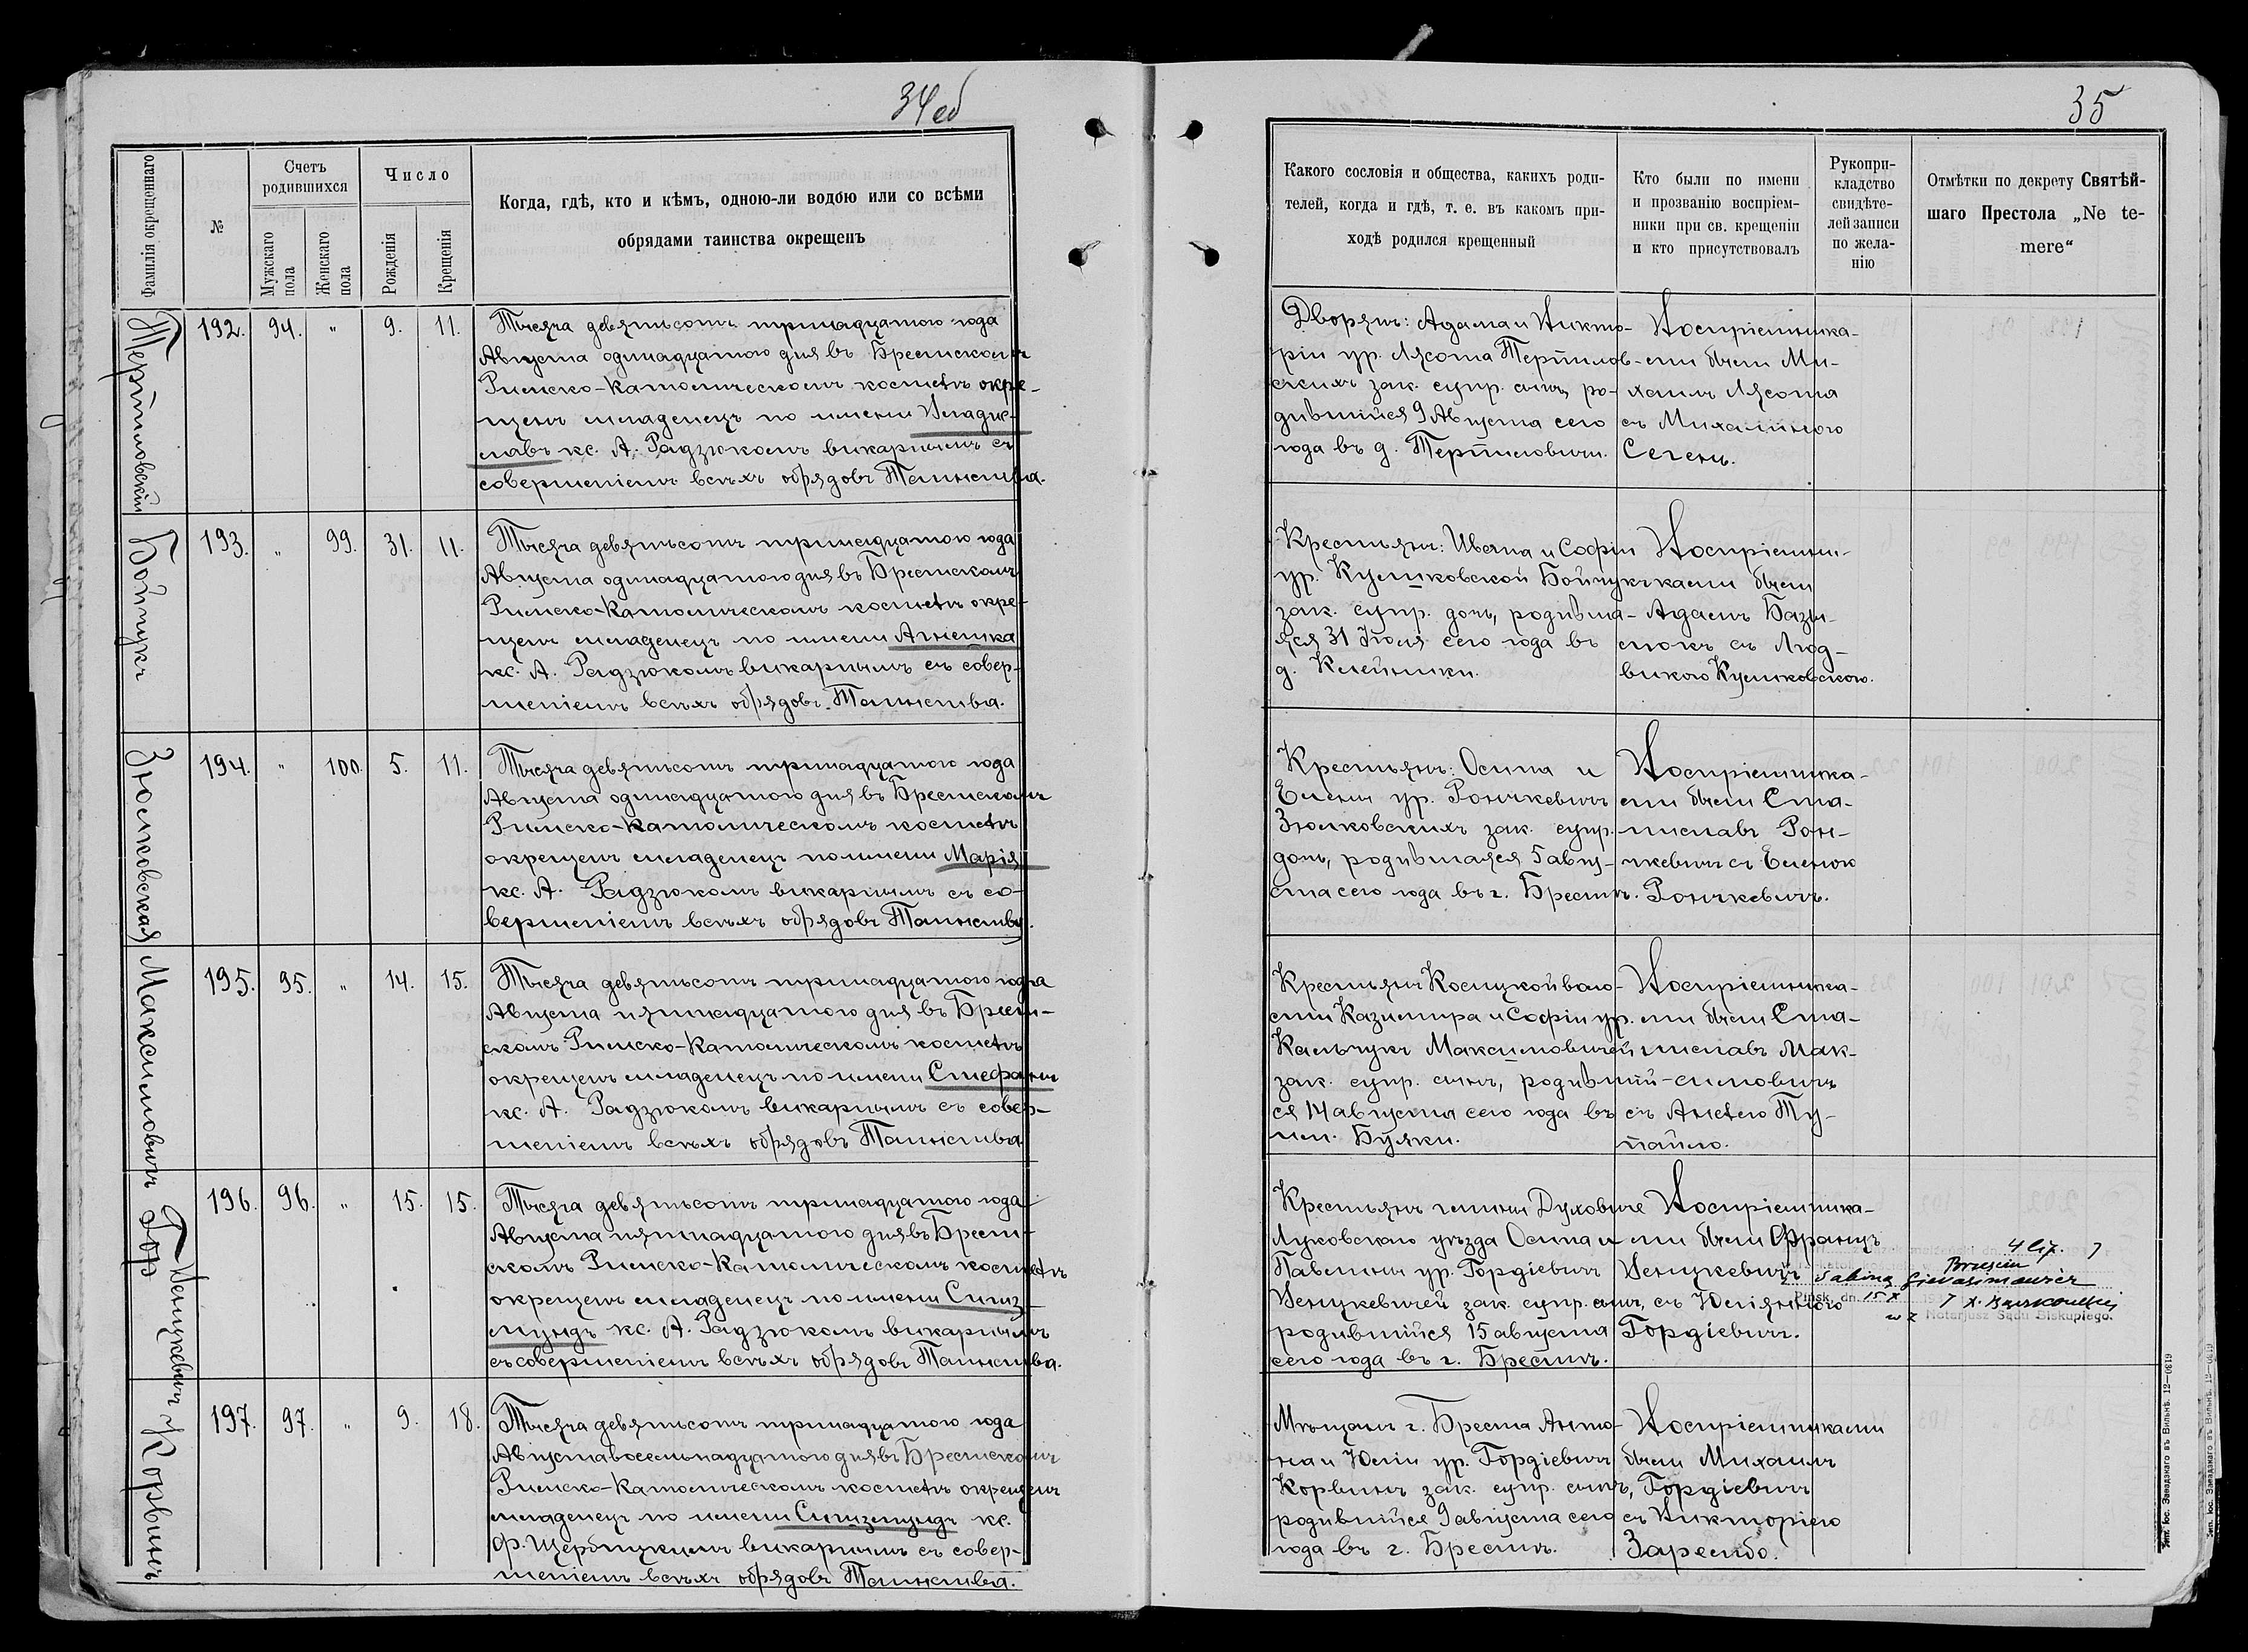 34 об
Фамилія окрещеннаго
№
Счетъ
родившихся
Мужскаго
пола
Женскаго
пола
Число
Рожденія
Крещенія
Когда, гдѣ, кто и кѣмъ, одною-ли водою или со всѣми
обрядами таинства окрещенъ
192. 94. " 9. 11.
Тысяча девятьсотъ тринадцатого года
Августа одинадцатого дня въ Брестскомъ
Римско-Католическомъ костелѣ окре-
щенъ младенецъ по имени Владис-
лавъ кс. А. Радзюкомъ викаріимъ съ
совершеніемъ всѣхъ обрядовъ Таинства.
Бойчукъ
193. " 99. 31. 11.
Тысяча девятьсотъ тринадцатого года
Августа одинадцатого дня въ Брестскомъ
Римско-Католическомъ костелѣ окре-
щенъ младенецъ по имени Агнешка
кс. А. Радзюкомъ викаріимъ съ совер-
шеніемъ всѣхъ обрядовъ Таинства.
Зюлковская
194. " 100. 5. 11.
Тысяча девятьсотъ тринадцатого года
Августа одинадцатого дня въ Брестскомъ
Римско-Католическомъ костелѣ
окрещенъ младенецъ по имени Марія
кс. А. Радзюкомъ викаріимъ съ со-
вершеніемъ всѣхъ обрядовъ Таинства.
Максимовичъ
195. 95. " 14. 15.
Тысяча девятьсотъ тринадцатого года
Августа пятнадцатого дня въ Брест-
скомъ Римско-Католическомъ костелѣ
окрещенъ младенецъ по имени Стефанъ
кс. А. Радзюкомъ викаріимъ съ совер-
шеніемъ всѣхъ обрядовъ Таинства
Венцкевичъ
196. 96. " 15. 15.
Тысяча девятьсотъ тринадцатого года
Августа пятнадцатого дня въ Брест-
скомъ Римско-Католическомъ костелѣ
окрещенъ младенецъ по имени Сигиз-
мундъ кс. А. Радзюкомъ викаріимъ
съ совершеніемъ всѣхъ обрядовъ Таинства.
Корвинъ
197. 97. " 9. 18.
Тысяча девятьсотъ тринадцатого года
Августа восемьнадцатого дня въ Брестскомъ
Римско-Католическомъ костелѣ окрещенъ
младенецъ по имени Сигизмундъ кс.
Ф. Щербицкимъ викаріимъ съ совер-
шеніемъ всѣхъ обрядовъ Таинства.
35
Какого сословія и общества, какихъ роди-
телей, когда и гдѣ, т. е. въ какомъ при-
ходѣ родился крещенный
Кто были по имени
и прозванію воспріем-
ники при св. крещеніи
и кто присутствовалъ
Рукопри-
кладство
свидѣте-
лей записи
по жела-
нію
Отмѣтки по декрету Святѣй-
шаго Престола „Ne te-
mere“
Дворянъ: Адама и Викто-
ріи ур. Лясота Терпилов-
скихъ зак. супр. сынъ, ро-
дившійся 9 Августа сего
года въ д. Терпиловичи.
Воспріемника-
ми были Ми-
хаилъ Лясота
съ Михалиною
Сегень.
Крестьянъ: Ивана и Софіи
ур. Куликовской Бойчукъ
зак. супр. дочь, родивша-
яся 31 Іюля сего года въ
д. Клейники.
Воспріемни-
ками были
Адамъ Бази-
люкъ съ Люд-
викою Куликовскою.
Крестьянъ: Осипа и
Елены ур. Рончкевичъ
Зюлковскихъ зак. супр.
дочь, родившаяся 5 авгу-
ста сего года въ г. Брестѣ.
Воспріемника-
ми были Ста-
ниславъ Рон-
чкевичъ съ Еленою
Рончкевичъ.
Крестьянъ Косицкой воло-
сти Казимира и Софіи ур.
Кальчукъ Максимовичей
зак. супр. сынъ, родившій-
ся 14 августа сего года въ
им. Буяки.
Воспріемника-
ми были Ста-
ниславъ Мак-
симовичъ
съ Анелею Ту-
пайло.
Крестьянъ гмины Духовиче
Луковскаго уѣзда Осипа и
Павлины ур. Гордіевичъ
Венцкевичей зак. супр. сынъ,
родившійся 15 августа
сего года въ г. Брестѣ.
Воспріемника-
ми были Францъ
Венцкевичъ
съ Юліянною
Гордіевичъ.
Sabiną Gierasimowicz
Pinsk, dn. 15 X
Notarjusz Sądu Biskupiego.
Мѣщанъ г. Бреста Анто-
на и Юліи ур. Гордіевичъ
Корвинъ зак. супр. сынъ,
родившійся 9 августа сего
года въ г. Брестѣ.
Воспріемниками
были Михаилъ
Гордіевичъ
съ Викторіею
Зарембо.
Тип. Іос. Завадзкаго въ Вильнѣ. 12—0619